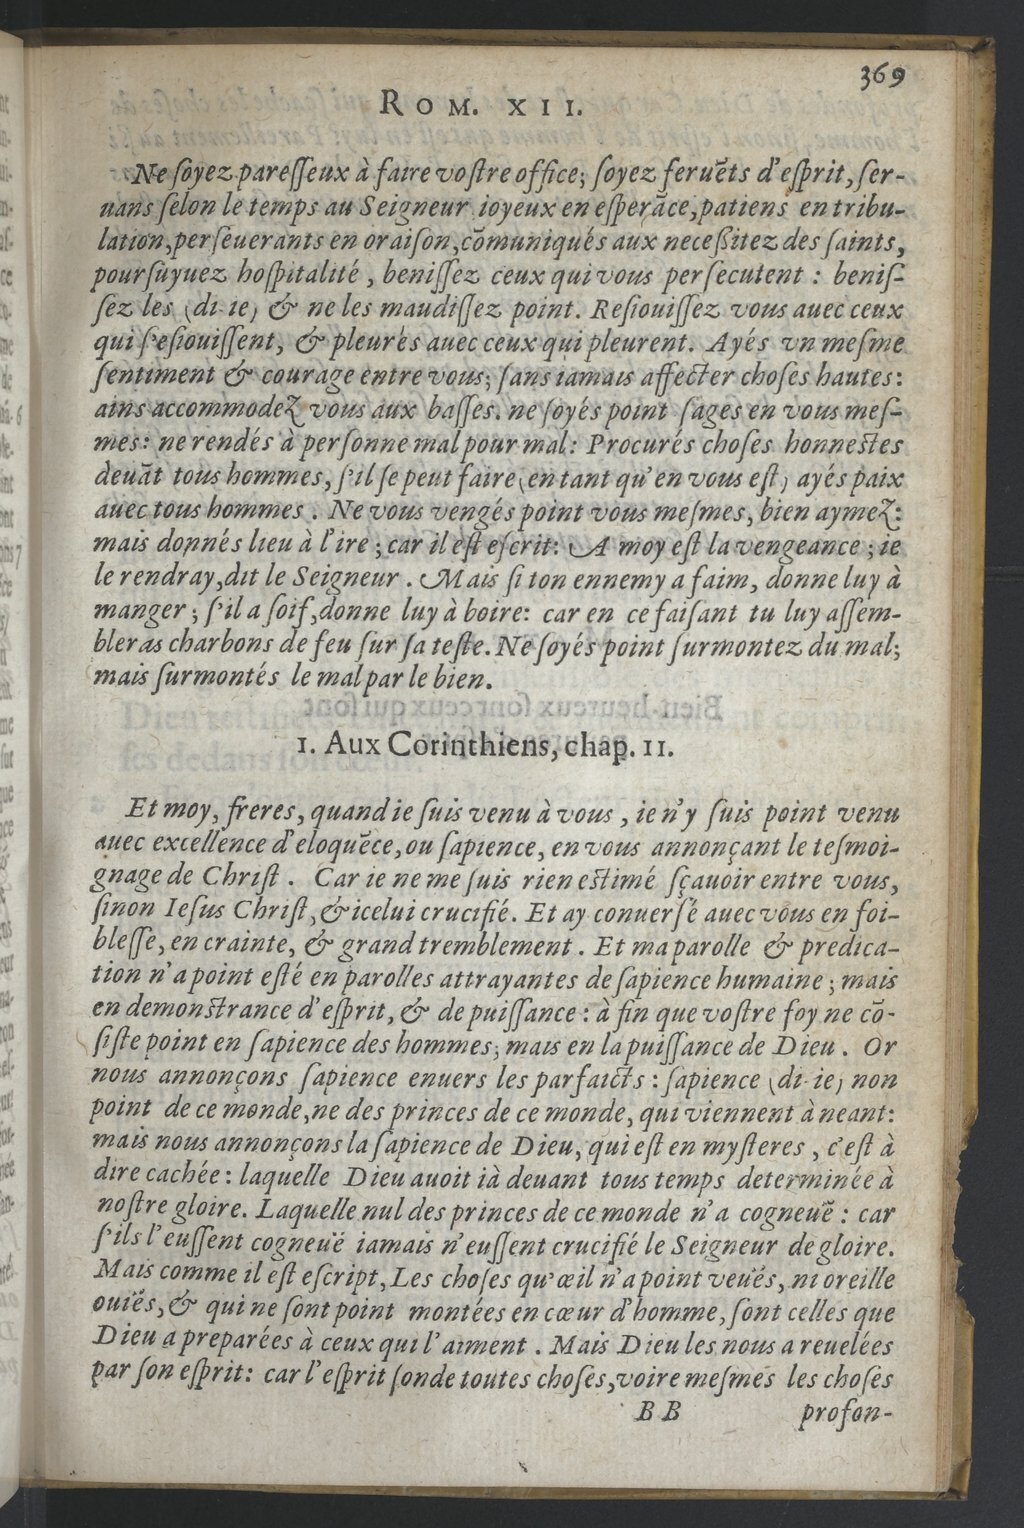 369
ROM. XII.
Ne ſoyez pareſſeux à faire voſtre office; ſoyez feruẽts d'eſprit, ſer-
uans ſelon le temps au Seigneur ioyeux en eſperãce, patiens en tribu-
lation, perſeuerants en oraiſon, cõmuniqués aux neceßitez des ſaints,
pourſuyuez hoſpitalité, beniſſez ceux qui vous perſecutent : beniſ-
ſez les (di-ie) & ne les maudiſſez point. Reſiouiſſez vous auec ceux
qui ſ'eſiouiſſent, & pleurés auec ceux qui pleurent. Ayés vn meſme
ſentiment & courage entre vous; ſans iamais affecter choſes hautes:
ains accommodez vous aux baſſes. ne ſoyés point ſages en vous meſ-
mes: ne rendés à perſonne mal pour mal: Procurés choſes honneſtes
deuãt tous hommes, ſ'il ſe peut faire (en tant qu'en vous eſt) ayés paix
auec tous hommes . Ne vous vengés point vous meſmes, bien aymez:
mais donnés lieu à l'ire ; car il eſt eſcrit: A moy eſt la vengeance ; ie
le rendray, dit le Seigneur . Mais ſi ton ennemy a faim, donne luy à
manger ; ſ'il a ſoif, donne luy à boire: car en ce faiſant tu luy aſſem-
bleras charbons de feu ſur ſa teſte. Ne ſoyés point ſurmontez du mal;
mais ſurmontés le mal par le bien.
1. Aux Corinthiens, chap. 11.
Et moy, freres, quand ie ſuis venu à vous , ie n'y ſuis point venu
auec excellence d'eloquẽce, ou ſapience, en vous annonçant le teſmoi-
gnage de Chriſt . Car ie ne me ſuis rien eſtimé ſçauoir entre vous,
ſinon Ieſus Chriſt, & icelui crucifié. Et ay conuerſé auec vous en foi-
bleſſe, en crainte, & grand tremblement . Et ma parolle & predica-
tion n'a point eſté en parolles attrayantes de ſapience humaine ; mais
en demonſtrance d'eſprit, & de puiſſance : à fin que voſtre foy ne cõ-
ſiſte point en ſapience des hommes; mais en la puiſſance de Dieu . Or
nous annonçons ſapience enuers les parfaicts : ſapience (di-ie) non
point de ce monde, ne des princes de ce monde, qui viennent à neant:
mais nous annonçons la ſapience de Dieu, qui eſt en myſteres , c'eſt à
dire cachée : laquelle Dieu auoit ià deuant tous temps determinée à
noſtre gloire. Laquelle nul des princes de ce monde n'a cogneuë : car
ſ'ils l'euſſent cogneuë iamais n'euſſent crucifié le Seigneur de gloire.
Mais comme il eſt eſcript, Les choſes qu'œil n'a point veuës, ni oreille
ouiës, & qui ne ſont point montées en cœur d'homme, ſont celles que
Dieu a preparées à ceux qui l'aiment . Mais Dieu les nous a reuelées
par ſon eſprit: car l'eſprit ſonde toutes choſes, voire meſmes les choſes
BB profon-